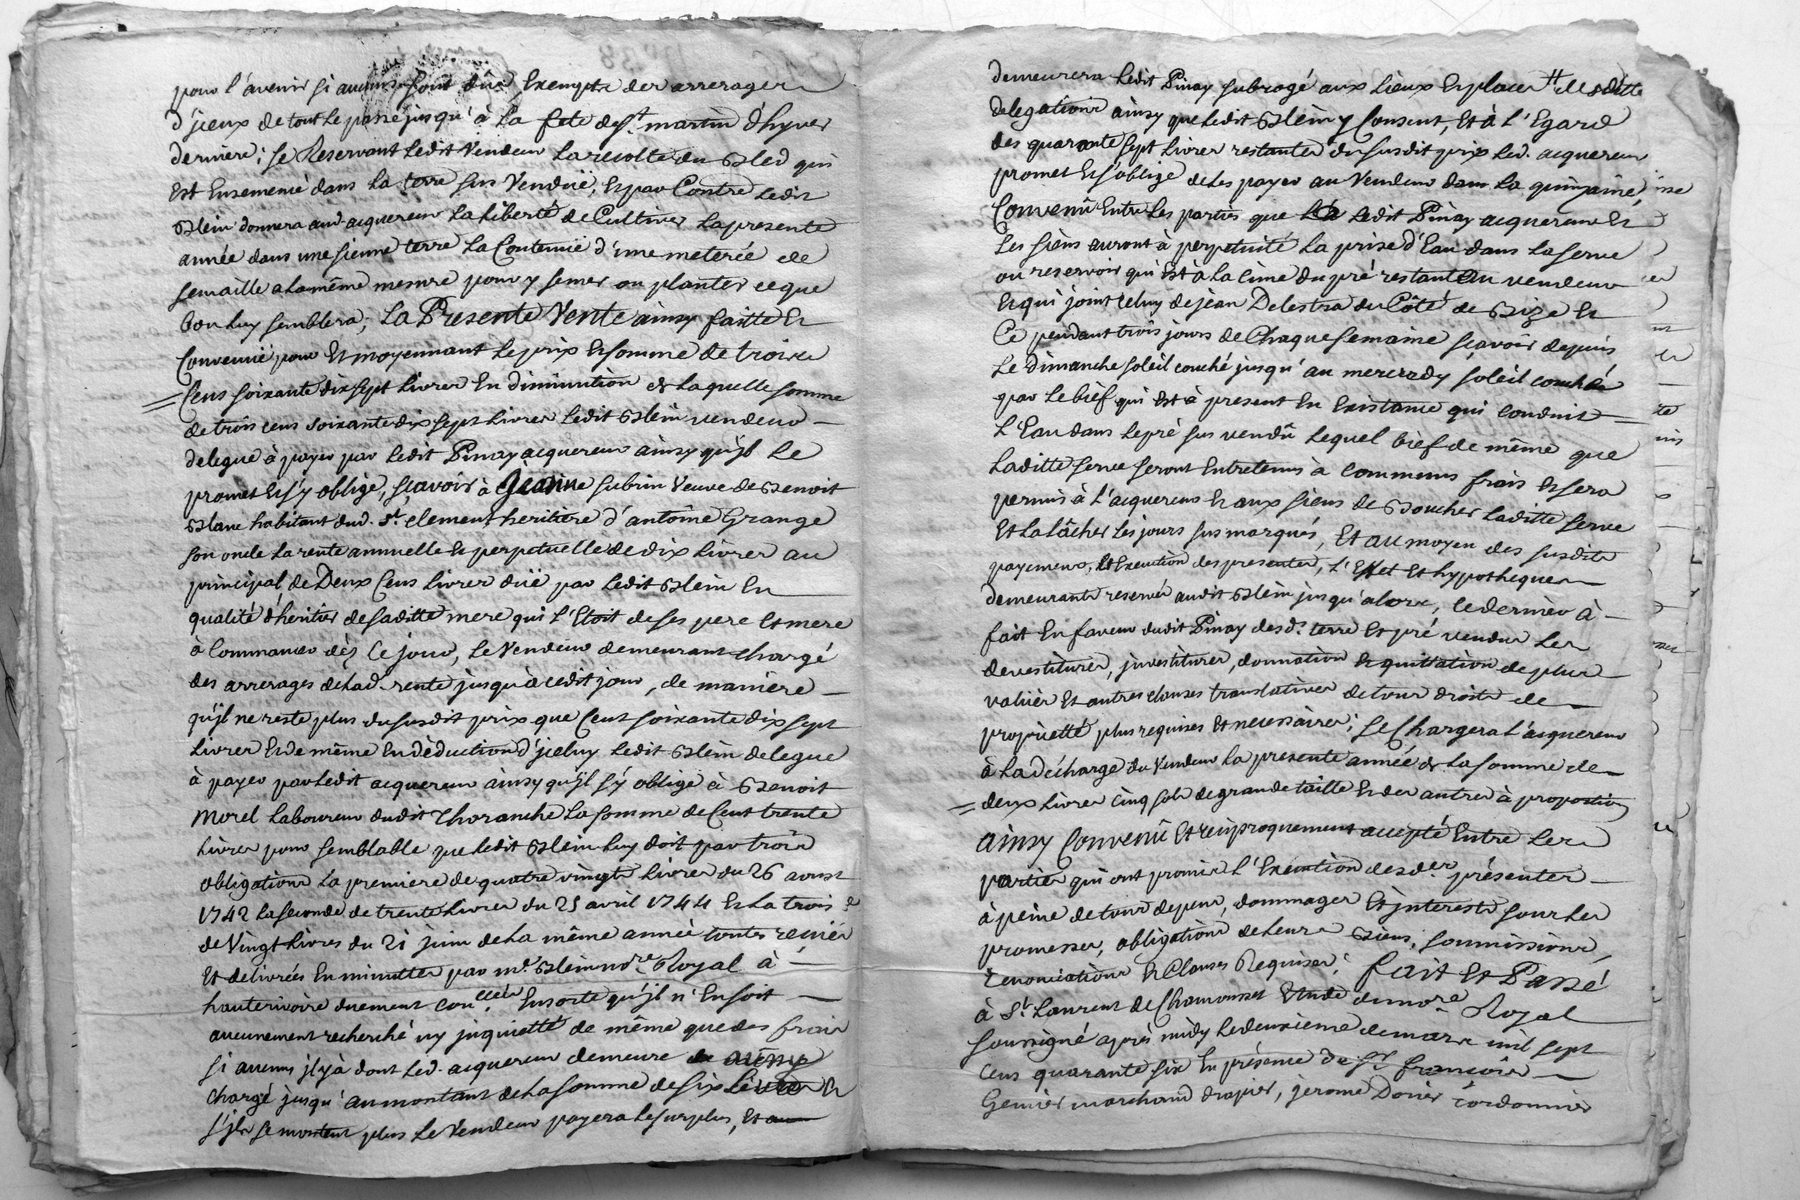 pour l'avenir si aucuns sont dûs, Exempte des arrerages
d'jceux de tout le passé jusqu'à la fete de st. martin d'hyver
derniere; se Reservant ledit Vendeur la recolte du Bled qui
Est Ensemencé dans la terre sus Venduë, Et par Contre ledit
Blein donnera aud acquereur la liberté de Cultiver la presente
année dans une sienne terre la Contenuë d'une meterée de
semaille a la même mesure pour y semer ou planter ce que
bon luy semblera; La Presente Vente ainsy faitte Et
Convenuë pour Et moyennant le prix Et somme de trois
Cens soixante dix sept livres En diminution de laquelle somme
de trois cens soixante dix sept livres ledit Blein vendeur
delegue à payer par ledit Pinay acquereur ainsy qu'jl le
promet Et s'y oblige, sçavoir à Jeanne subrin Veuve de Benoit
Blanc habitant dud. St. Clement heritiere d'antoine Grange
son oncle la rente annuelle Et perpetuelle de dix livres au
principal de Deux Cens livres duë par ledit Blein En
qualité d'heritier de saditte mere qui l'Etoit de ses pere Et mere
à Commancer dès Ce jour, le Vendeur demeurant chargé
des arrerages de lad. rente jusqu'à cedit jour, de maniere
qu'jl ne reste plus du susdit prix que Cent soixante dix sept
livres Et de même En déduction d'jceluy ledit Blein delegue
à payer par ledit acquereur ainsy qu'jl s'y oblige à Benoit
Morel laboureur dudit Tharanche la somme de Cent trente
livres pour semblable que ledit Blein luy doit par trois
obligations la premiere de quatre vingts livres du 26 aoust
1742 la seconde de trente livres du 25 avril 1744 Et la trois.e
de Vingt livres du 21 juin de la même année toutes
Et delivrées En minuttes par me. Blein nore. Royal à
hauterivoire duement En sorte qu'jl n'En soit
aucunement recherché ny jnquietté de même que des frais
si aucuns jl y à dont led. acquereur demeure
chargé jusqu'au montant de la somme de six livres Et
s'jls se montent plus le Vendeur payera le surplus, Et
demeurera ledit Pinay subrogé aux lieux Et places
delegations ainsy que ledit Blein y Consent, Et à l'Egard
des quarante sept livres restantes du susdit prix led. acquereur
promet Et s'oblige de les payer au Vendeur dans la quinzaine,
Convenû Entre les parties que ledit Pinay acquereur Et
les siens auront à perpetuité la prise d'Eau dans la serve
ou reservoir qui Est à la cime du pré restant au vendeur
Et qui joint celuy de jean Delestra du Côté de Bize Et
Ce pendant trois jours de Chaque semaine sçavoir depuis
le dimanche soleil couché jusqu'au mercredy soleil couché
par le bief qui Est à present En Existance qui conduit
l'Eau dans le pré sus vendû lequel bief de même que
laditte serve seront Entretenus à communs frais Et sera
permis à l'acquereur Et aux siens de Boucher laditte serve
Et la lâcher les jours sus marqués, Et au moyen des susdits
payemens, Et Execution des presentes, l'Effet Et hypotheques
demeurants reservés audit Blein jusqu'alors, ce dernier à
fait En faveur dudit Pinay desds. terre Et pré vendus les
devestitures, jnvestitures, donnation Et quittation de plus
valuës Et autres clauses translatives de tous droits de
proprietté plus requises Et necessaires; se Chargera l'acquereur
à la décharge du Vendeur la presente année de la somme de
deux livres cinq sols de grande taille Et des autres à proportion
ainsy Convenû Et reciproquement accepté Entre les
parties qui ont promis l'Execution desdes. présentes
à peine de tous depens, dommages Et jnterests sous les
promesses, obligations de leurs Biens, soumissions,
renonciations Et Clauses Requises; fait Et Passé
à St. Laurent de Chamousset Etude du nore. Royal
soussigné après midy le deuxieme de mars mil sept
Cens quarante six En présence de sr. françois
Genier marchand drapier, jerome Donier Cordonnier